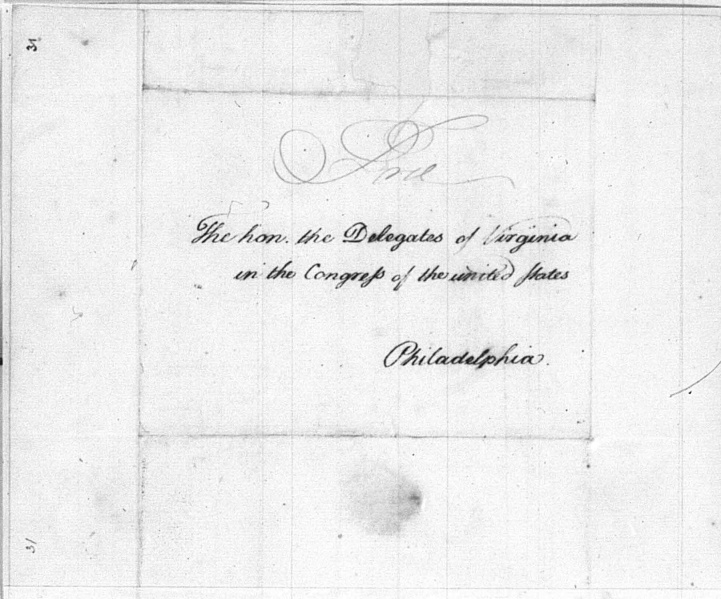 31
Free
The hon. the Delegates of Virginia
in the Congreſs of the united ſtates
Philadelphia.
31